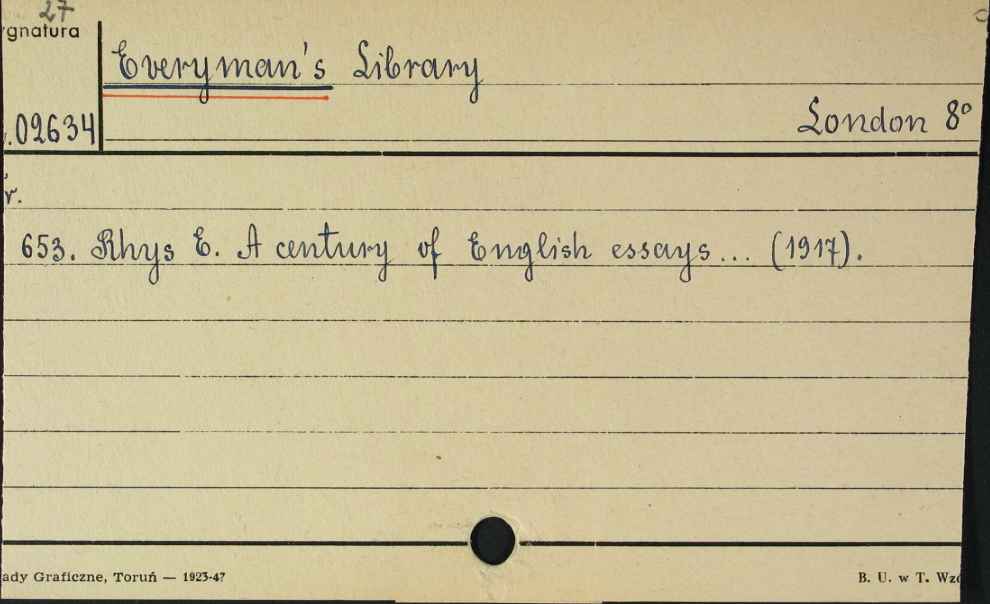 27
ygnatura
Everyman's Library
.02634
London 8°
r.
653. Rhys E. A century of English essays... (1917).
ady Graficzne, Toruń — 1923-47
B. U. w T. Wzó